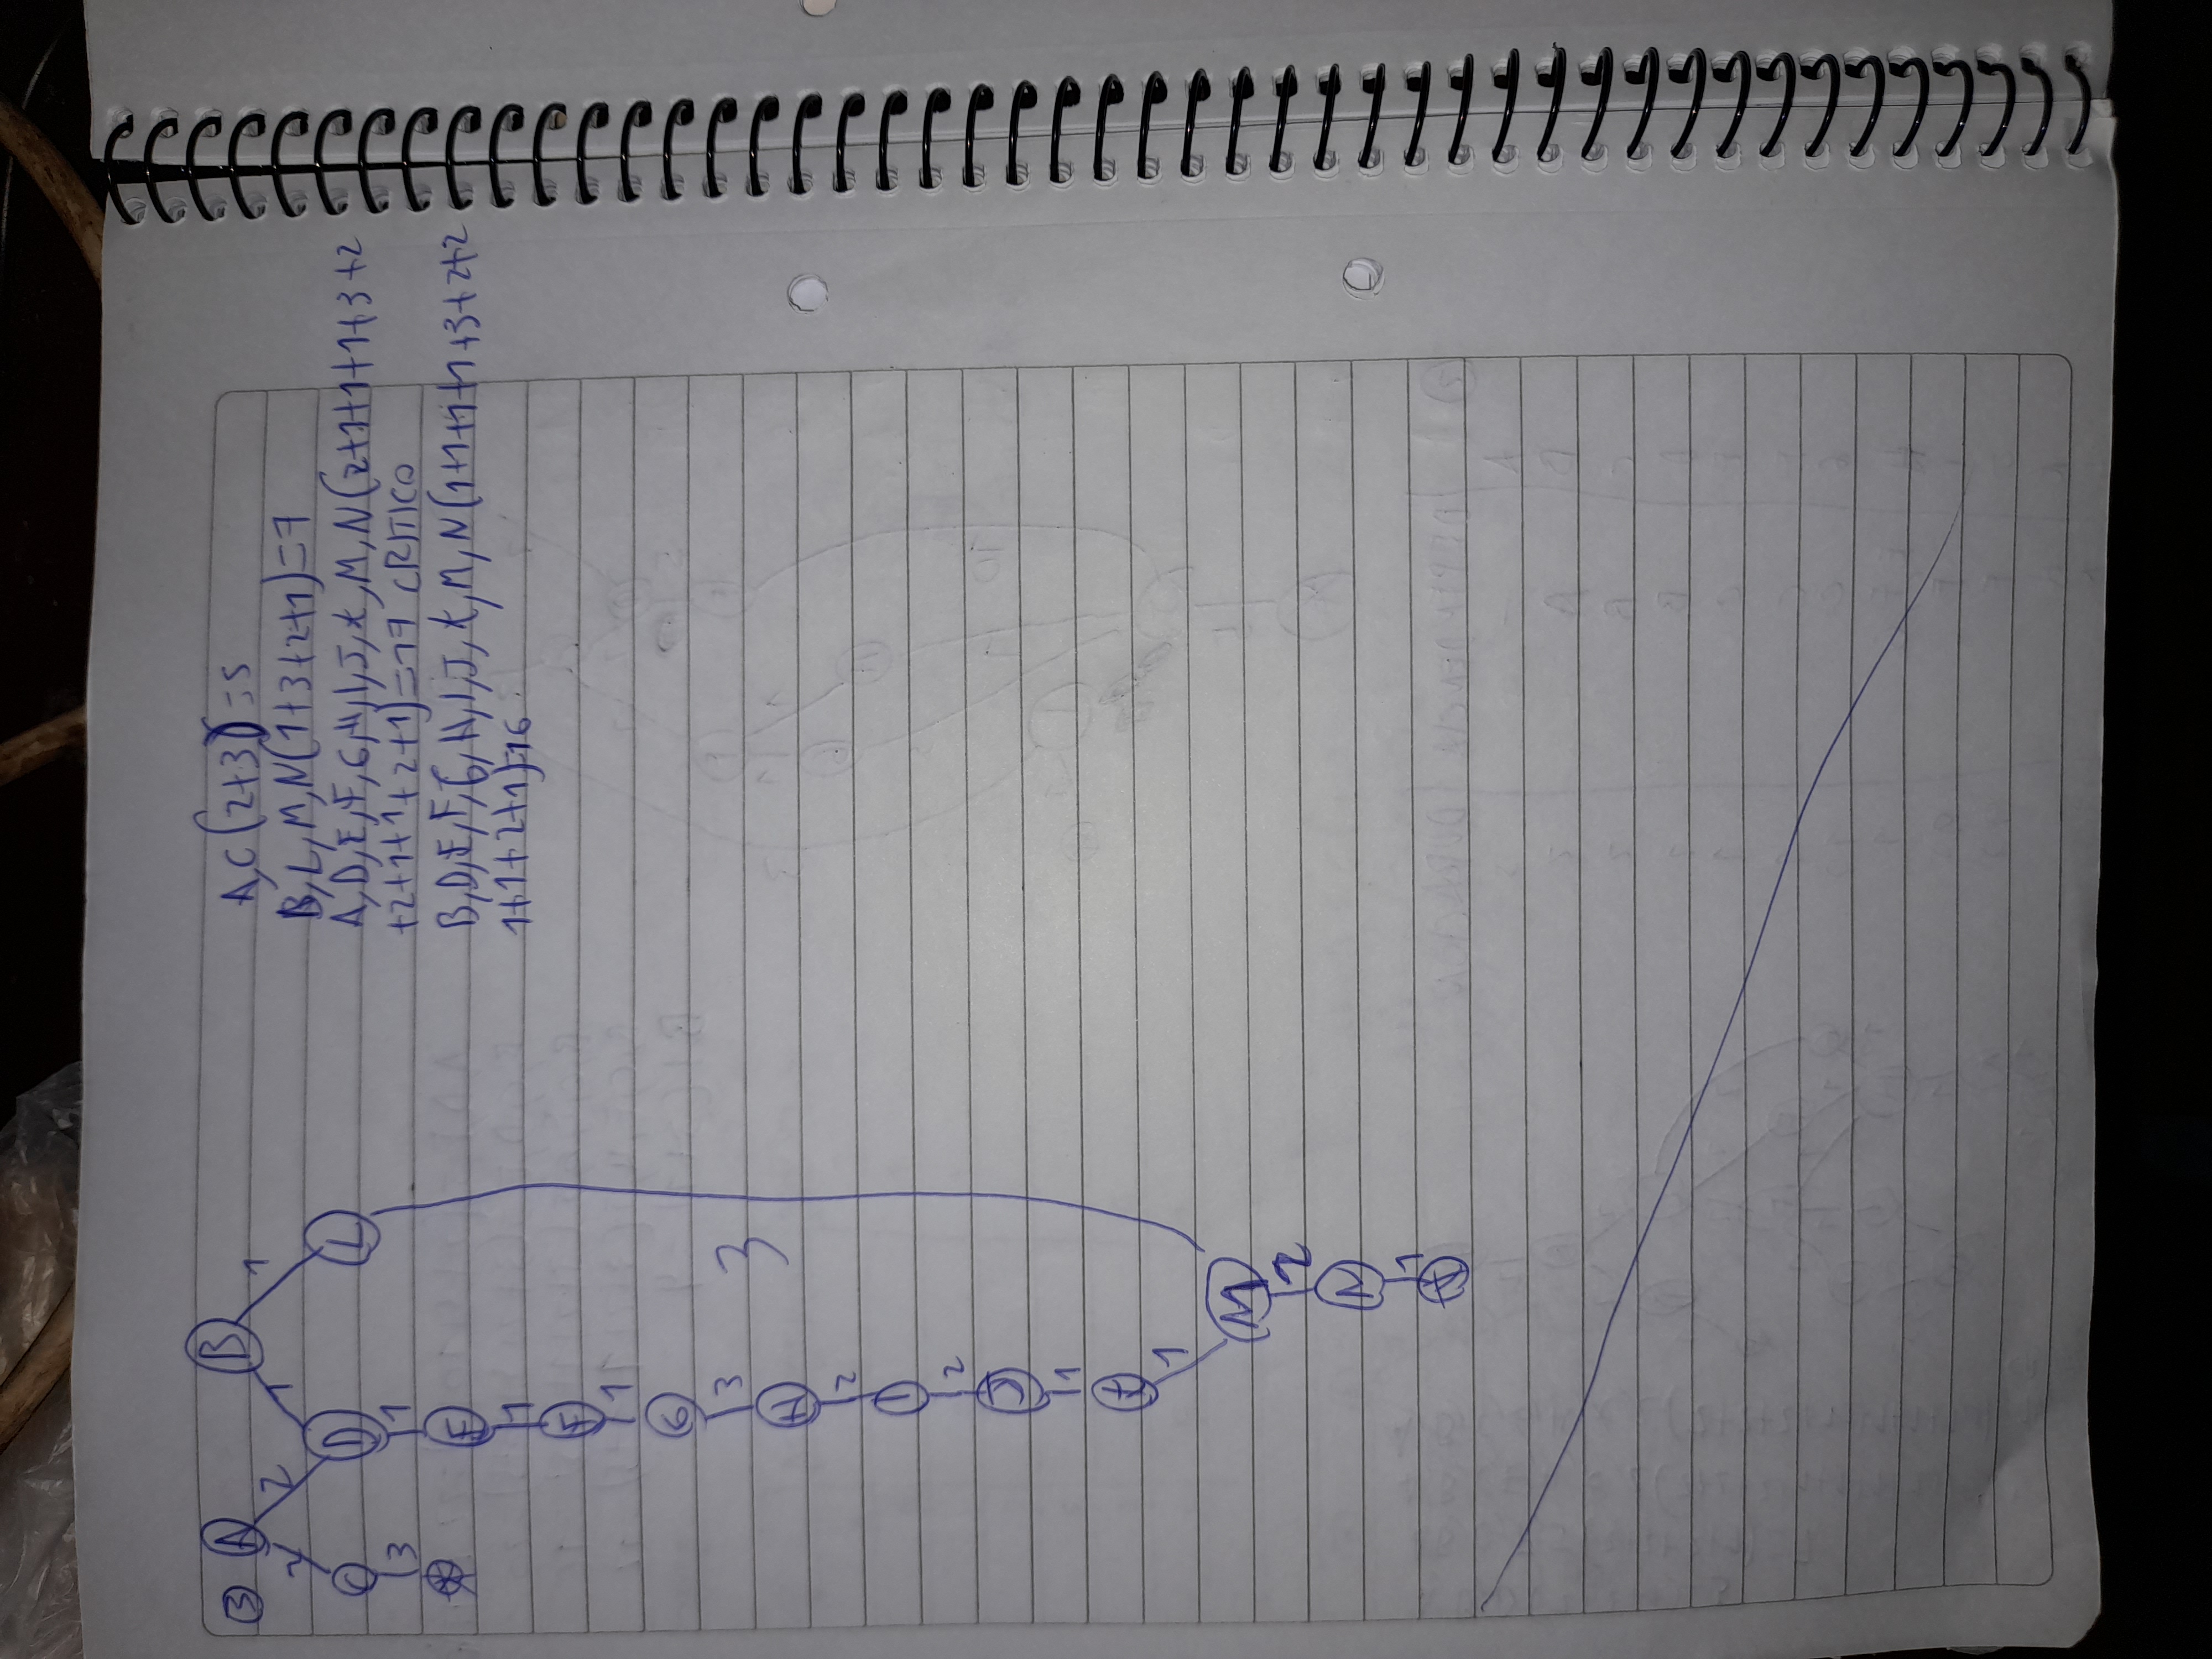 3 A B
2 2 1 1
C D L
3 1
* E
1
F
1
G
3 3
H
2
I
2
J
1
K
1
M
2
N
1
*
A,C(2+3)=5
B,L,M,N(1+3+2+1)=7
A,D,E,F,G,H,I,J,K,M,N(2+1+1+1+3+2
+2+1+1+2+1)=17 CRITICO
B,D,E,F,G,H,I,J,K,M,N(1+1+1+1+3+2+2
1+1+2+1)=16